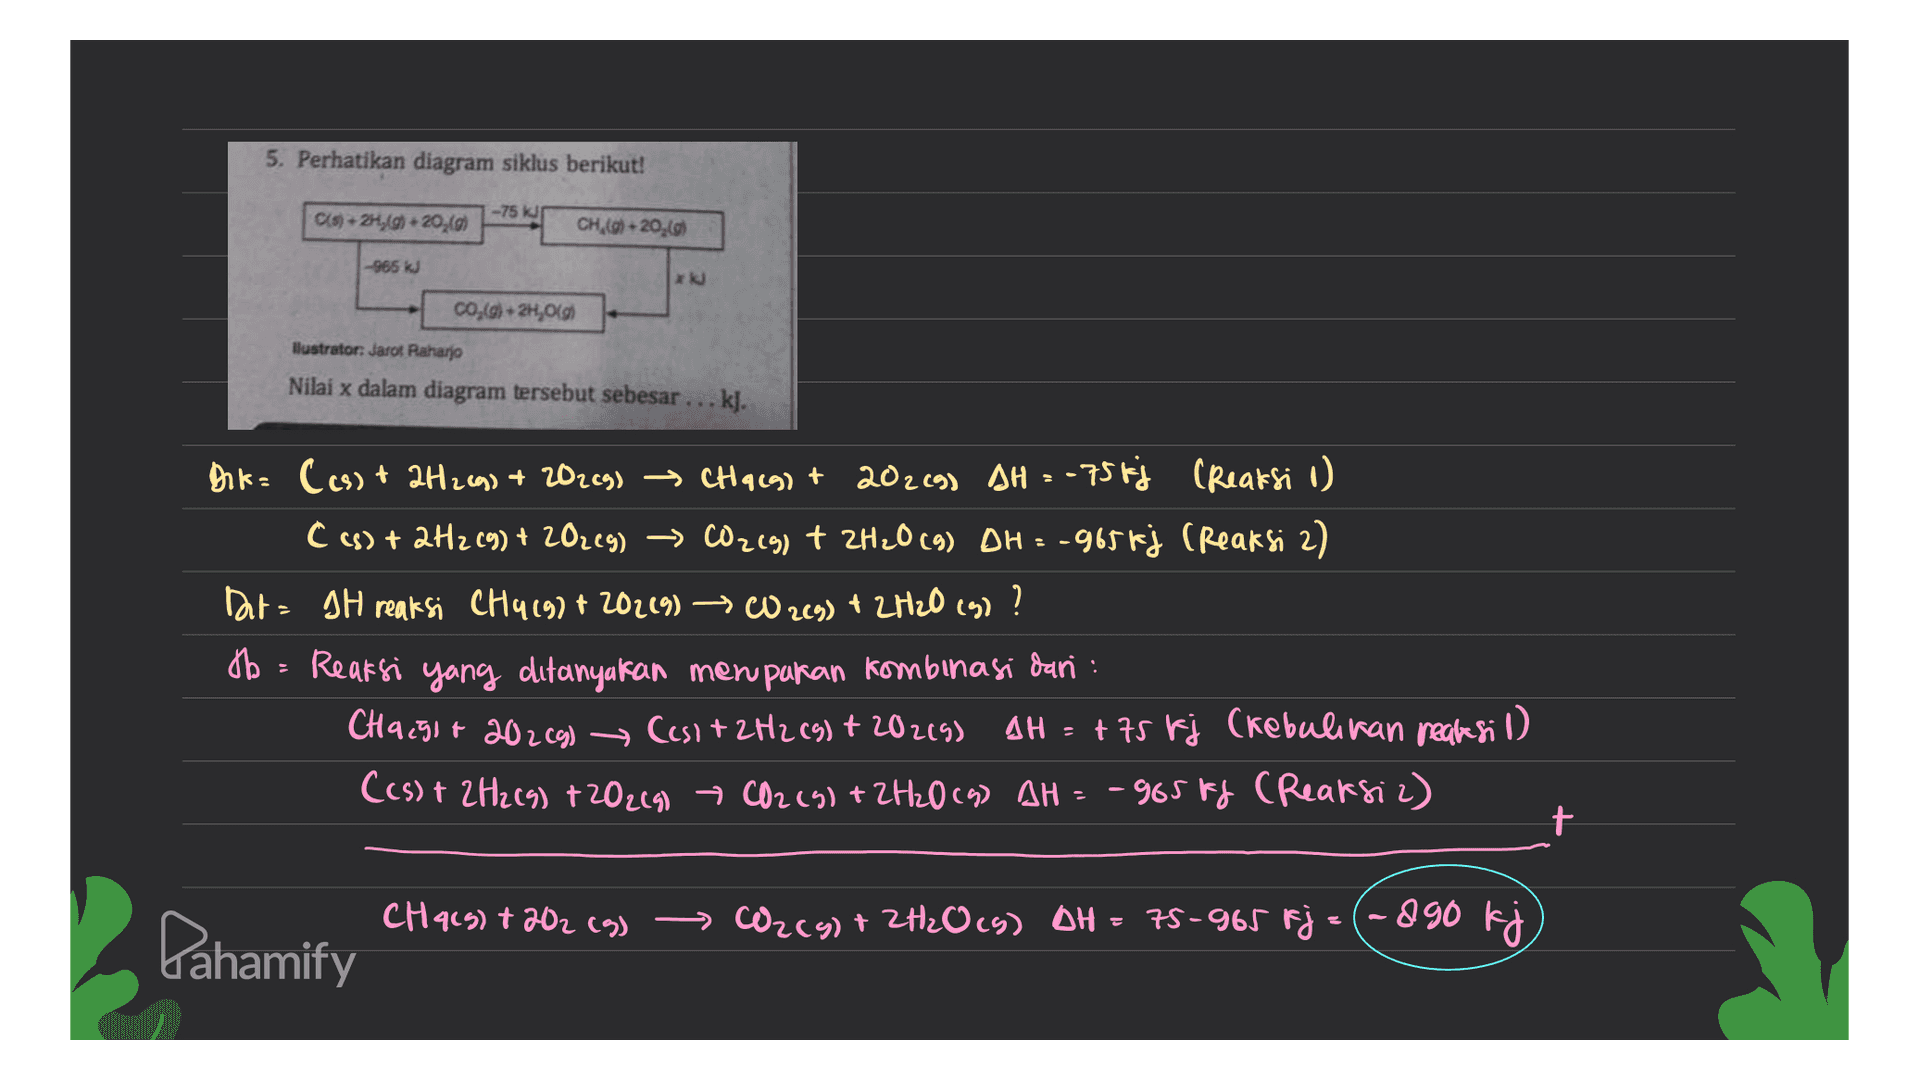 5. Perhatikan diagram siklus berikut!
C(s) + 2H₂(g) + 2O₂(g) -75 kJ CH₄(g) + 2O₂(g)
-965 kJ
x kJ
CO₂(g) + 2H₂O(g)
Ilustrator: Jarot Raharjo
Nilai x dalam diagram tersebut sebesar ... kJ.
Dik = C(s) + 2H2(g) + 2O2(g) → CH4(g) + 2O2(g) ΔH = -75 kj (Reaksi 1)
C(s) + 2H2(g) + 2O2(g) → CO2(g) + 2H2O(g) ΔH = -965 kj (Reaksi 2)
Dit = ΔH reaksi CH4(g) + 2O2(g) → CO2(g) + 2H2O(g) ?
Jb = Reaksi yang ditanyakan merupakan kombinasi dari :
CH4(g) + 2O2(g) → C(s) + 2H2(g) + 2O2(g) ΔH = +75 kj (kebalikan reaksi 1)
C(s) + 2H2(g) + 2O2(g) → CO2(g) + 2H2O(g) ΔH = -965 kj (Reaksi 2)
+
CH4(g) + 2O2(g) → CO2(g) + 2H2O(g) ΔH = 75-965 kj = -890 kj
Pahamify